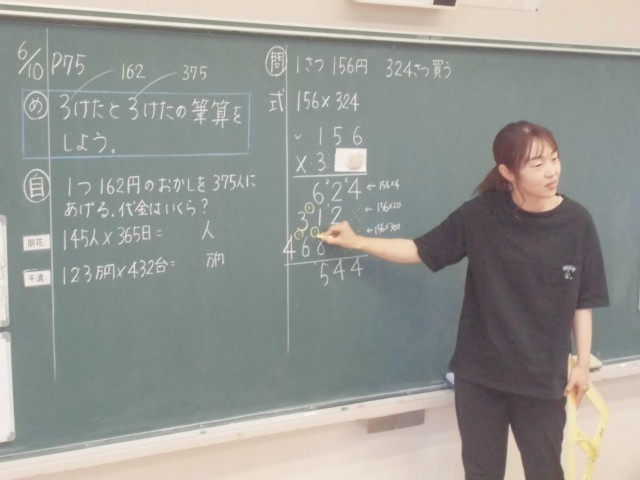 6/10 P75
162 375
め 3けたと3けたの筆算を
しよう。
自 1つ162円のおかしを375人に
あげる。代金はいくら?
145人×365日= 人
123万円×432台= 万円
問 1さつ156円 324さつ買う
式 156×324
156
×3
624 ←156×4
312 ←156×20
468 ←156×300
544